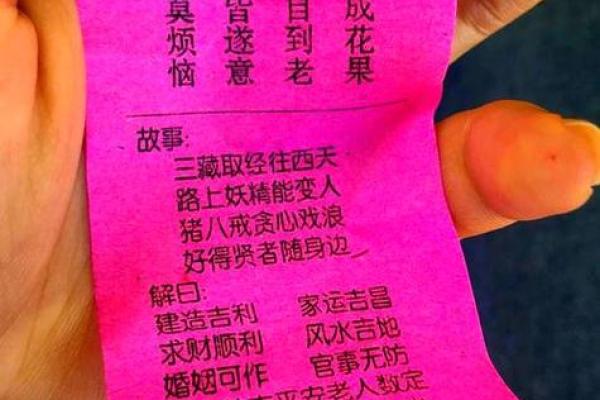 成花果
到老
皆遂意
莫烦恼
故事:
三藏取经往西天
路上妖精能变人
猪八戒贪心戏浪
好得贤者随身边
解曰:
建造吉利 家运吉昌
求财顺利 风水吉地
婚姻可作 官事无防
平安老人数定